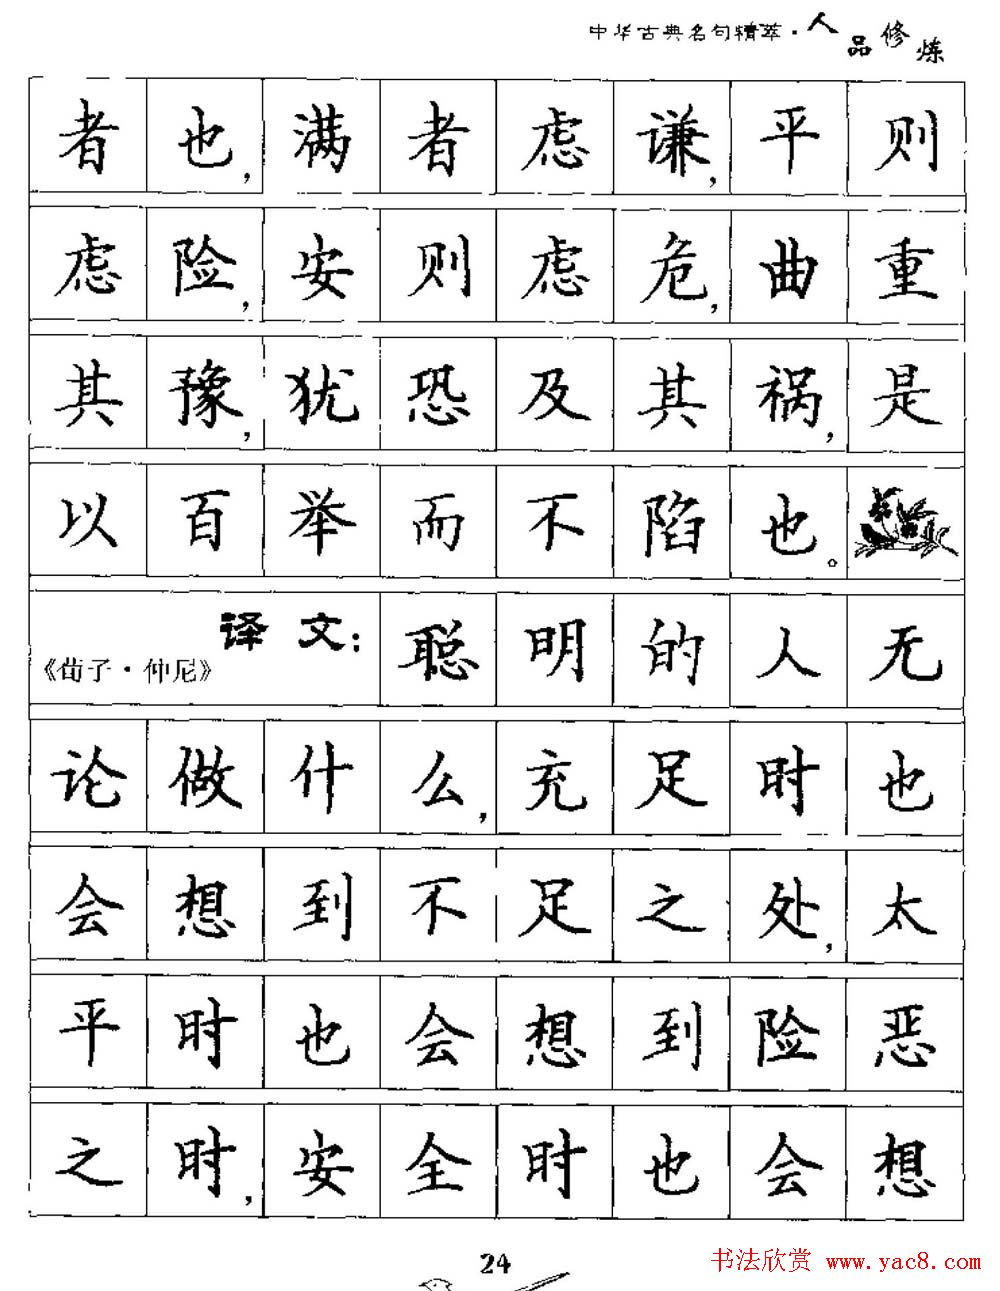 中华古典名句精萃·人品修炼
者也,满者虑谦,平则
虑险,安则虑危,曲重
其豫,犹恐及其祸,是
以百举而不陷也。
译文:聪明的人无
《荀子·仲尼》
论做什么,充足时也
会想到不足之处,太
平时也会想到险恶
之时,安全时也会想
24
书法欣赏 www.yac8.com